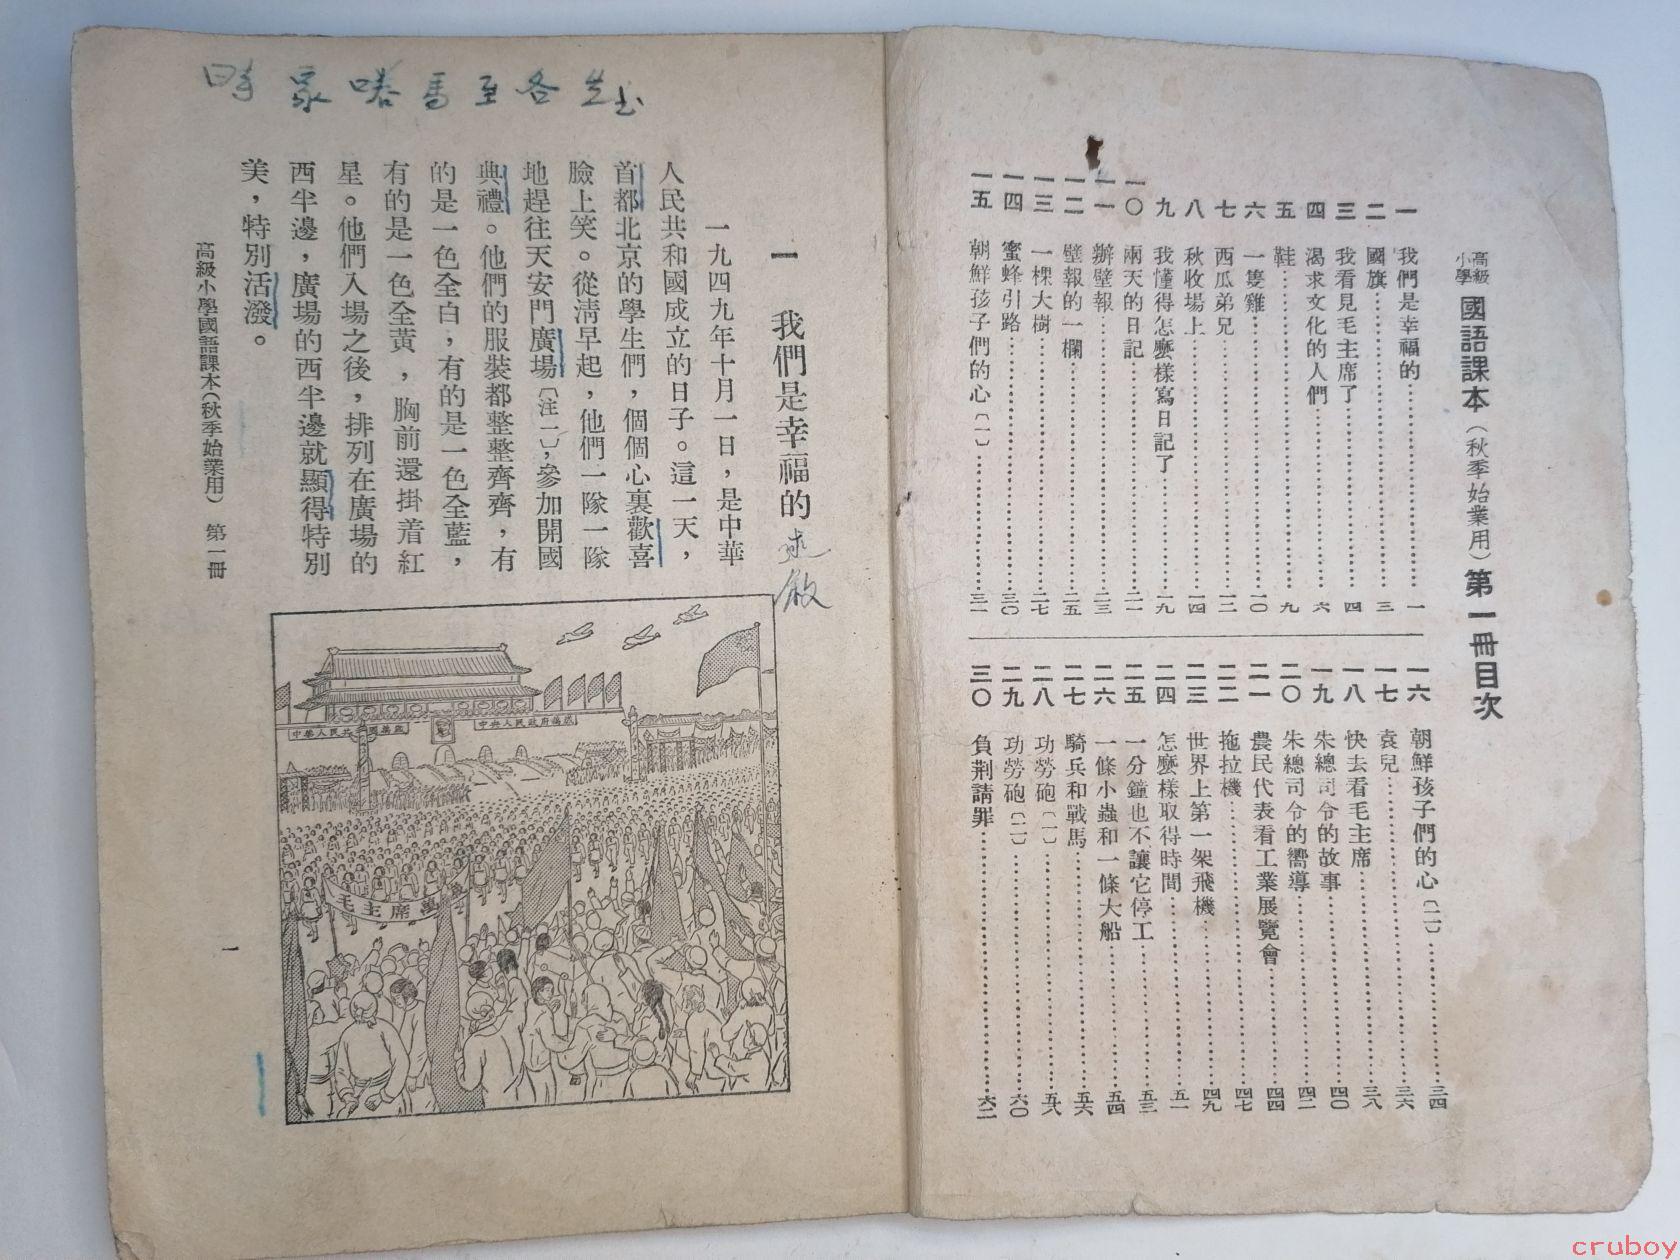 高級小學 國語課本（秋季始業用）第一冊目次
一 我們是幸福的 一
二 國旗 三
三 我看見毛主席了 四
四 渴求文化的人們 六
五 鞋 九
六 一隻雞 一〇
七 西瓜弟兄 一二
八 秋收場上 一四
九 我懂得怎麼樣寫日記了 一九
一〇 雨天的日記 二一
一一 辦壁報 二三
一二 壁報的一欄 二五
一三 一棵大樹 二七
一四 蜜蜂引路 三〇
一五 朝鮮孩子們的心〔一〕 三一
一六 朝鮮孩子們的心〔二〕 三四
一七 袁兒 三六
一八 快去看毛主席 三八
一九 朱總司令的故事 四〇
二〇 朱總司令的嚮導 四二
二一 農民代表看工業展覽會 四四
二二 拖拉機 四七
二三 世界上第一架飛機 四九
二四 怎麼樣取得時間 五一
二五 一分鐘也不讓它停工 五三
二六 一條小蟲和一條大船 五四
二七 騎兵和戰馬 五六
二八 功勞砲〔一〕 五八
二九 功勞砲〔二〕 六〇
三〇 負荆請罪 六二
一 我們是幸福的
一九四九年十月一日，是中華
人民共和國成立的日子。這一天，
首都北京的學生們，個個心裏歡喜
臉上笑。從清早起，他們一隊一隊
地趕往天安門廣場〔注一〕，參加開國
典禮。他們的服裝都整整齊齊，有
的是一色全白；有的是一色全藍，
有的是一色全黃，胸前還掛着紅
星。他們入場之後，排列在廣場的
西半邊，廣場的西半邊就顯得特別
美，特別活潑。
高級小學國語課本（秋季始業用） 第一冊
中央人民政府萬歲
毛主席萬
一
cruboy